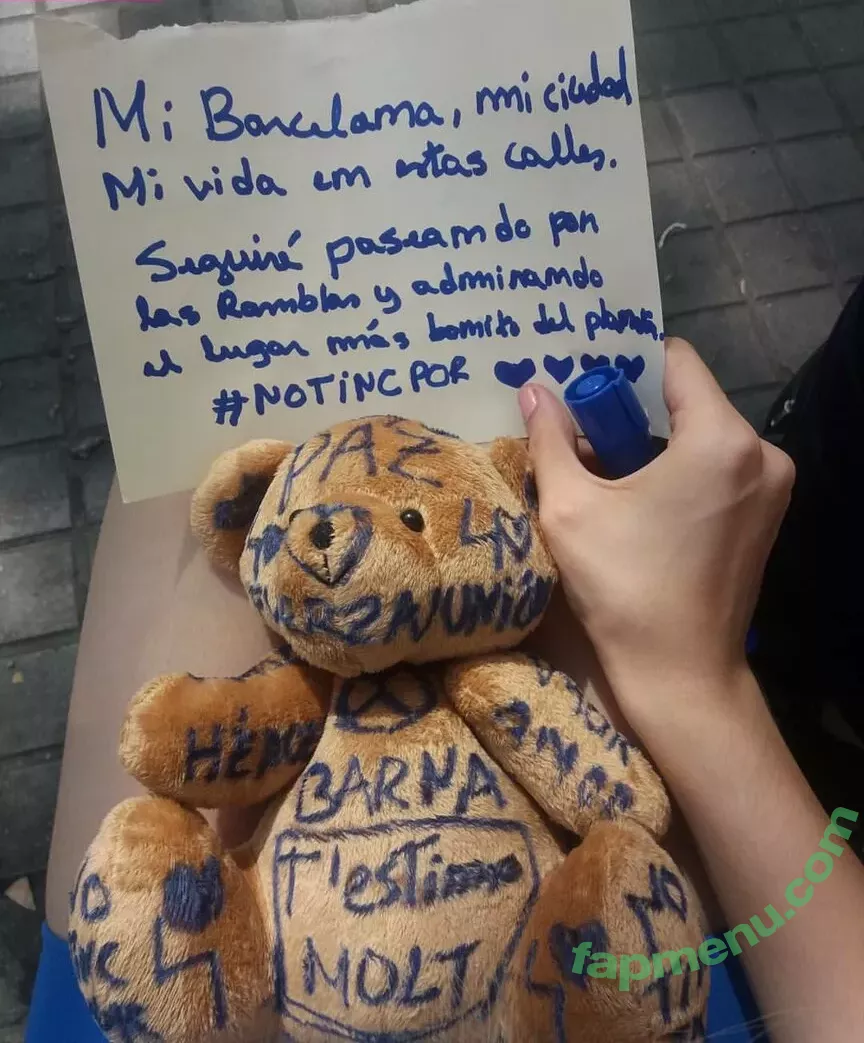 Mi Barcelona, mi ciudad
Mi vida en estas calles.
Seguiré paseando por
las Ramblas y admirando
el lugar más bonito del planeta.
#NOTINCPOR ♥♥♥♥
PAZ
UNIÓN
BARNA
T'estimo
MOLT
NO
fapmenu.com